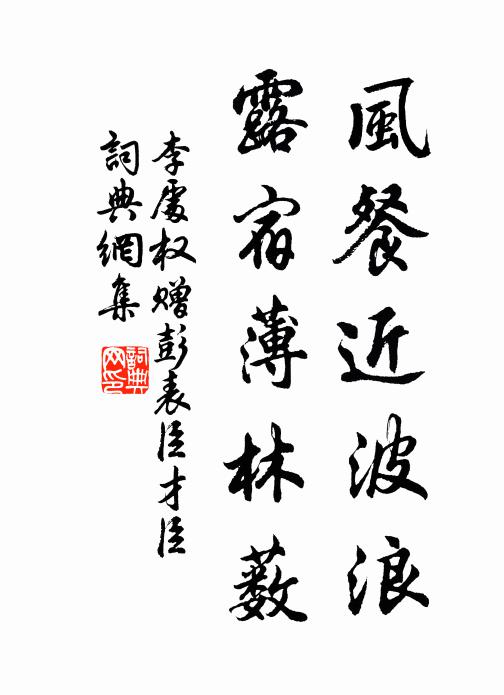 風餐近波浪
露宿薄林藪
李處权赠彭表臣才臣
詞典網集
詞典網印